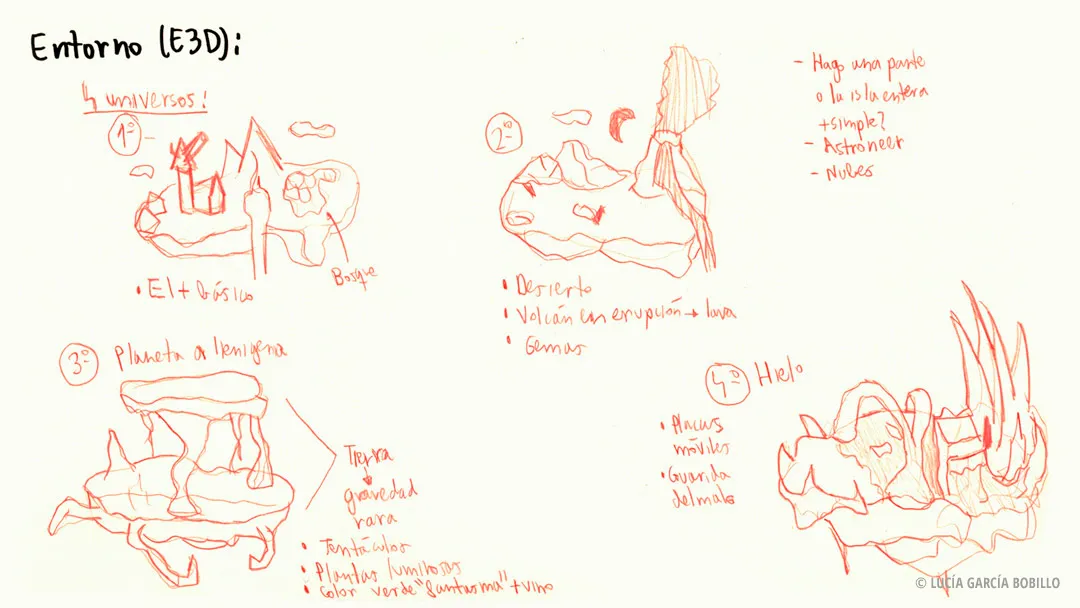 Entorno (E3D):
4 universos:
1º
Bosque
• El + básico
2º
• Desierto
• Volcán en erupción → lava
• Gemas
- Hago una parte
o la isla entera
+ simple?
- Astroneer
- Nubes
3º Planeta alienígena
Tierra
gravedad
rara
• Tentáculos
• Plantas luminosas
• Color verde "fantasma" + vino
4º Hielo
• Placas
móviles
• Guarida
del malo
© LUCÍA GARCÍA BOBILLO